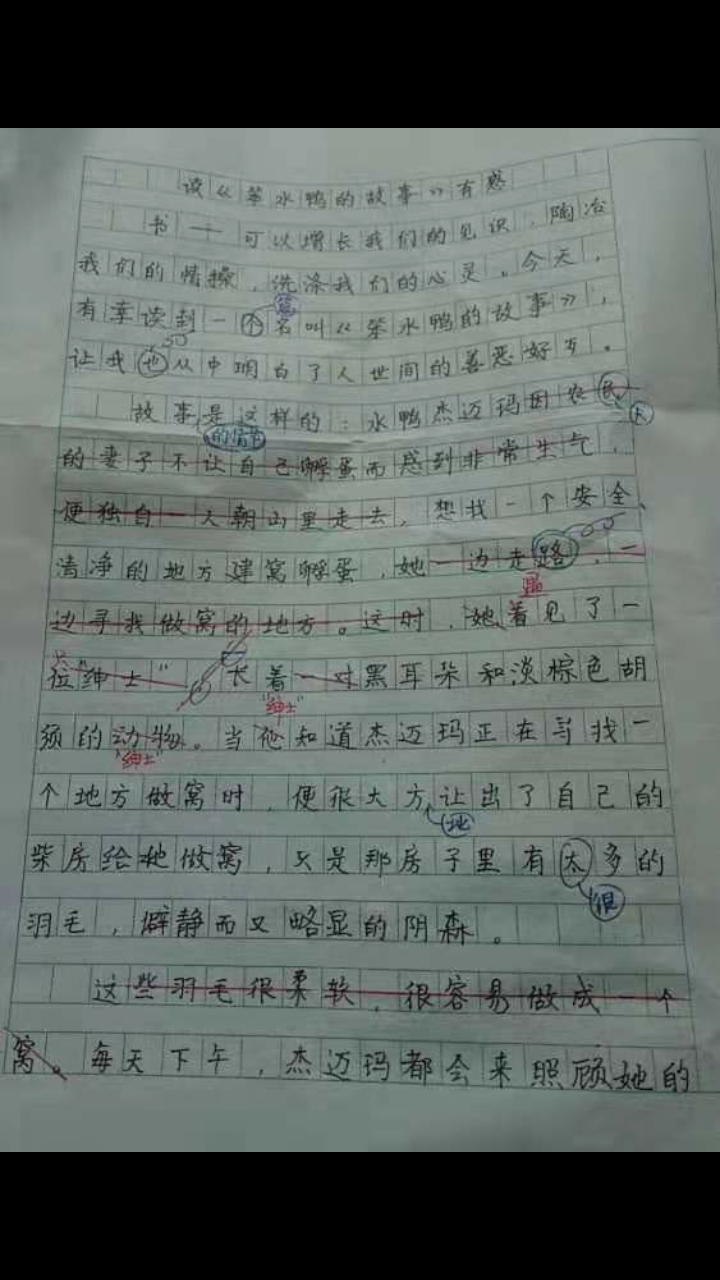 读《笨水鸭的故事》有感
书——可以增长我们的见识，陶冶
我们的情操，洗涤我们的心灵。今天，
篇
有幸读到一个名叫《笨水鸭的故事》，
让我也从中明白了人世间的善恶好歹。
故事是这样的：水鸭杰迈玛因农民
的情节
夫
的妻子不让自己孵蛋而感到非常生气，
便独自一人朝山里走去，想找一个安全、
洁净的地方建窝孵蛋，她一边走路，一
边寻找做窝的地方。这时，她看见了一
位“绅士” 长着一对黑耳朵和淡棕色胡
“绅士”
须的动物。当他知道杰迈玛正在寻找一
“绅士”
个地方做窝时，便很大方让出了自己的
地
柴房给她做窝，只是那房子里有太多的
很
羽毛，僻静而又略显的阴森。
这些羽毛很柔软，很容易做成一个
窝。每天下午，杰迈玛都会来照顾她的